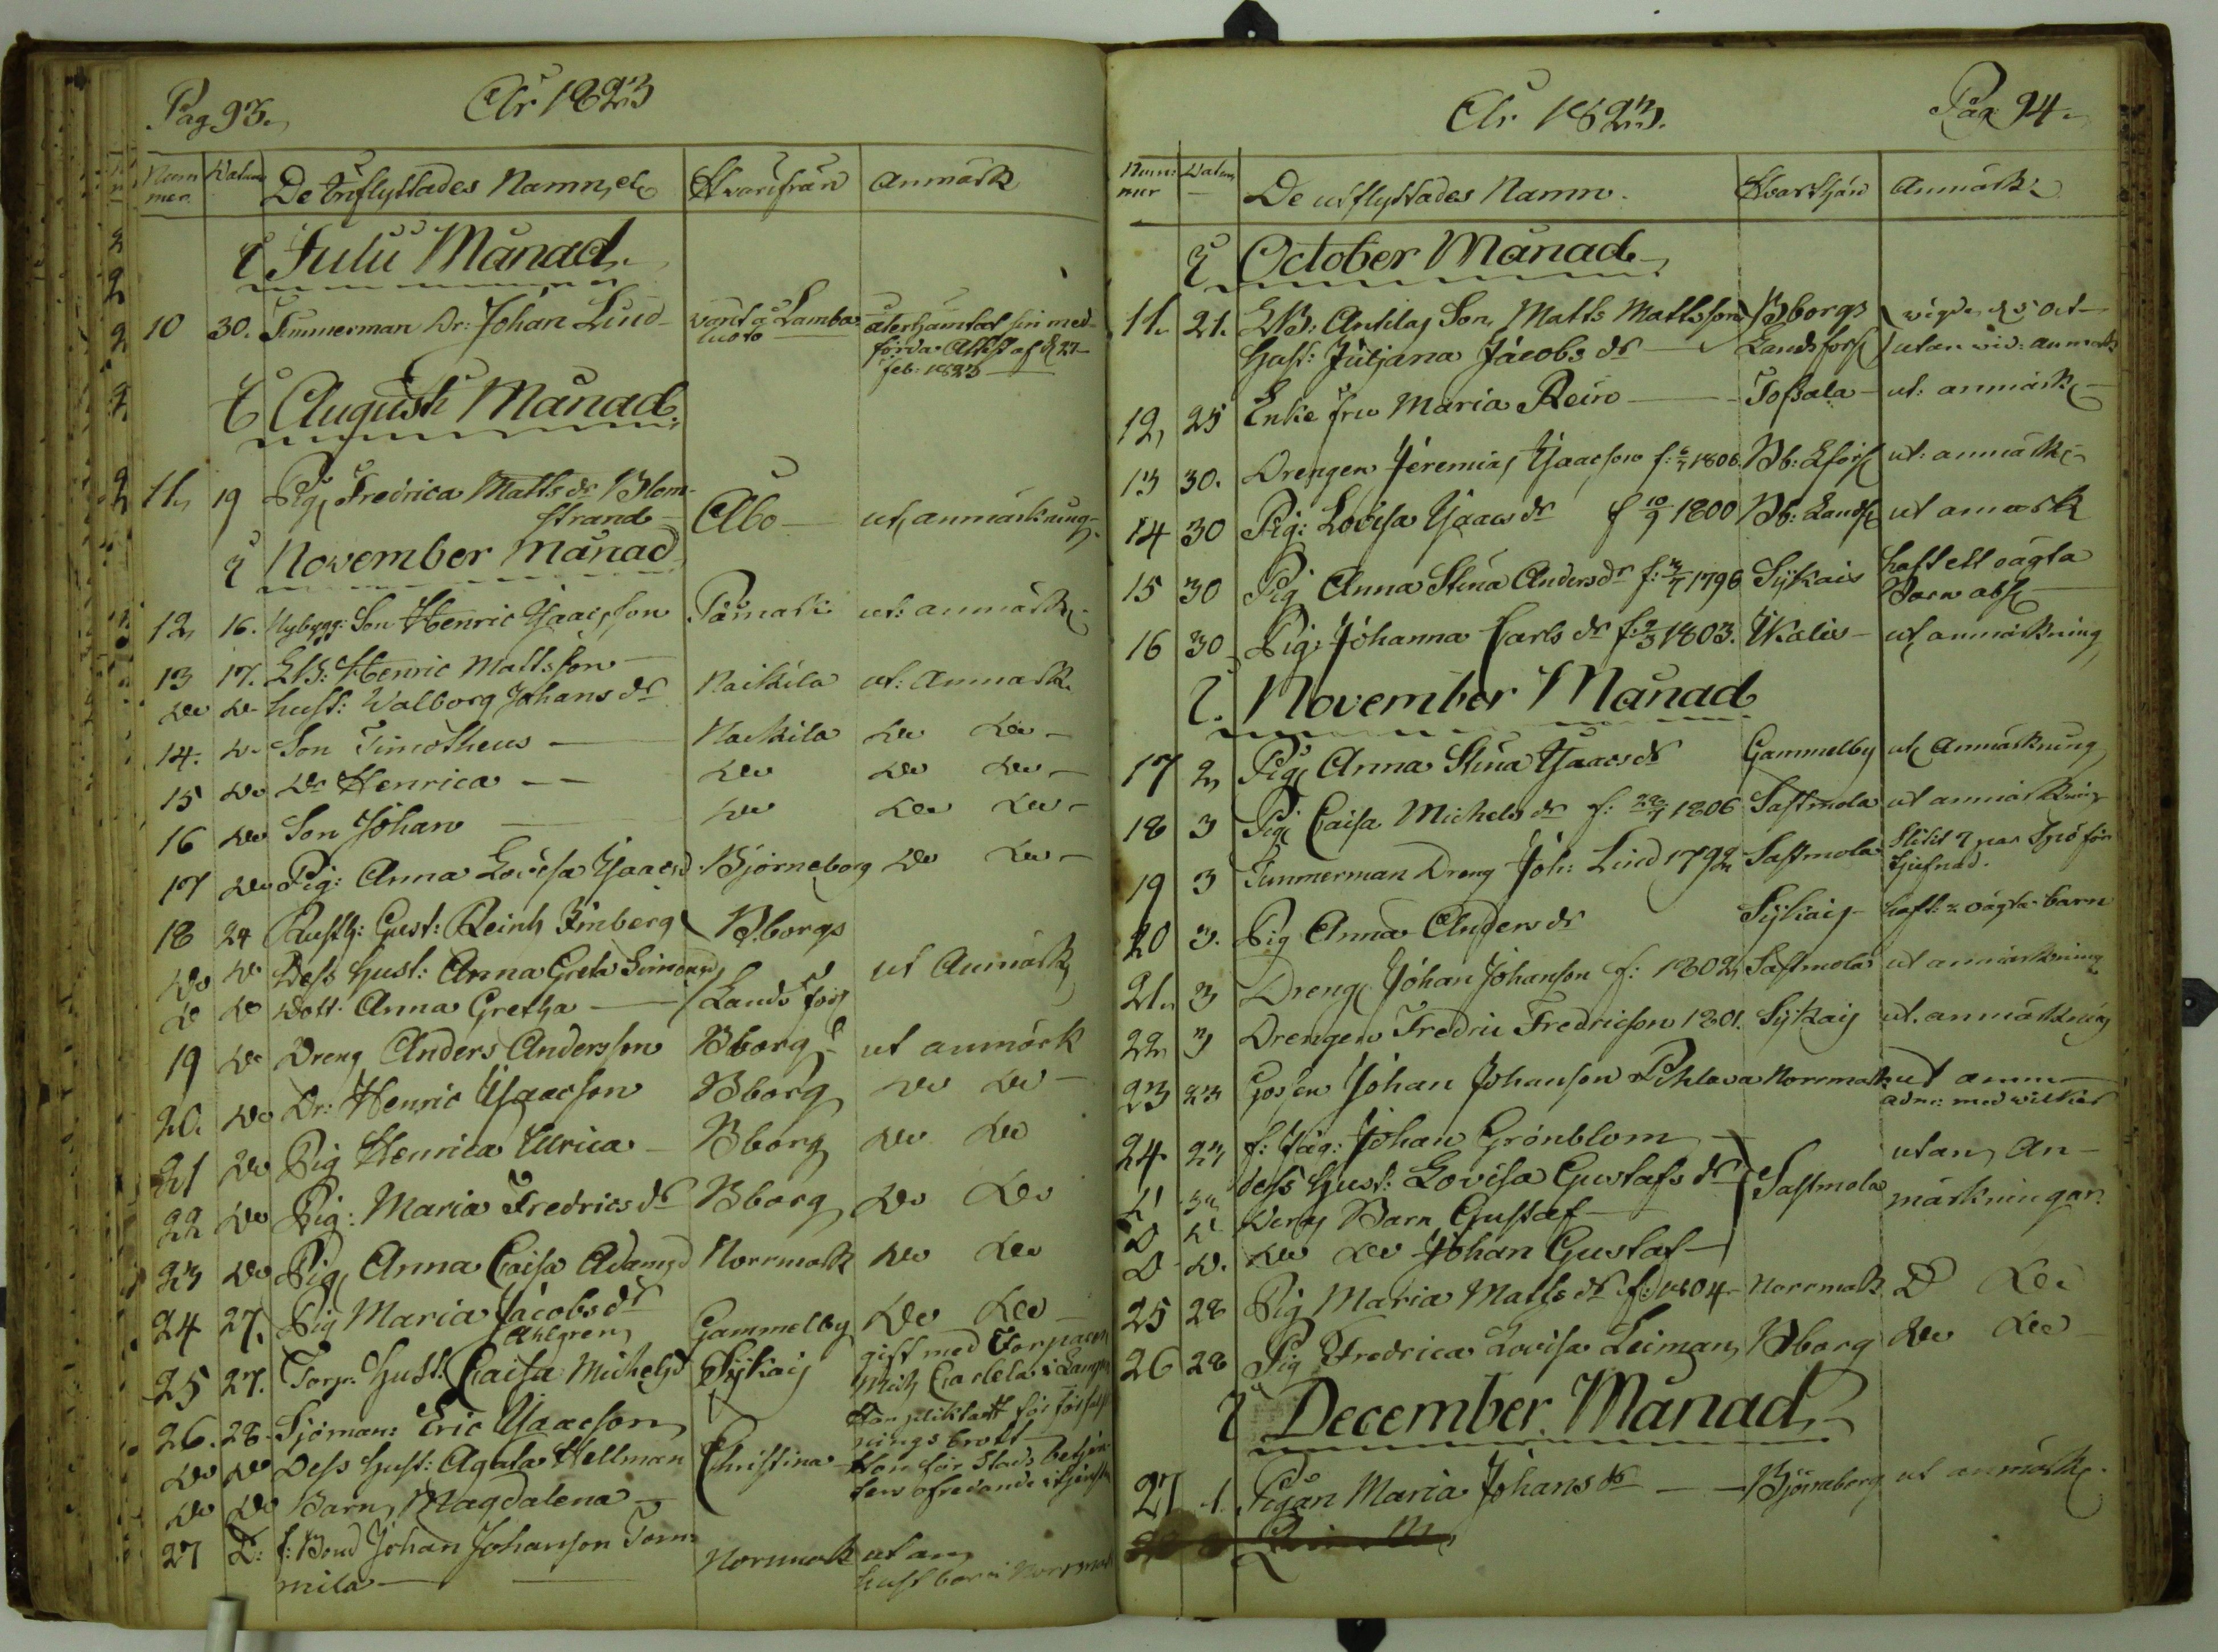 Pag 93.
År 1823
Num
mer
Datum
De inflyttades Namn, etc
Hvarifrån
Anmärk
I Julii Månad.
10 30. Timmerman Dr: Johan Lind varit å Lamba- återhämtat sin med-
luoto förda Attest af d 27
feb: 1823
I Augusti Månad.
11, 19 Pig. Fredrica Matts dr Blom-
strand Åbo ut. anmärkning
I November Månad
12, 16. Nybygg: Son Henric Isaacsson Påmark ut: anmärk
13 17. EB: Henric Mattsson
Do Do hust: Walborg Johans dr Nackila ut: Anmärk.
14. Do Son Timotheus Nackila Do Do
15 Do Dr Henrica Do Do Do
16 Do Son Johan Do Do Do
17 Do Pig: Anna Lovisa Isaacsd Björneborg Do Do
18 24 Rusth: Gust: Reinh Finberg B.borgs
Do Do Dess Hust: Anna Greta Simonsd ut Anmärk
Do Do Dott. Anna Gretha Lands förs
19 Do Dreng Anders Andersson Bborg ut anmärk
20. Do Dr: Henric Isaacsson Bborg Do Do
21 Do Pig Henrica Ulrica Bborg Do Do
22 Do Pig: Maria Fredrics dr Bborg Do Do
23 Do Pig Anna Caisa Adamsd Norrmark Do Do
24 27. Pig Maria Jacobs dr
Ahlgren Gammelby Do Do
25 27. Torp. Hust: Caisa Michelsd Sykais gift med Torparen
Mich i Lamp
26. 28. Sjöman: Eric Isaacson
Do Do Dess hust: Agata Hellman Christina
Do Do Barn, Magdalena
27 D: f: Bond Johan Johanson Tom-
mila Norrmark utan
År 1823.
Pag: 94.
Num:
mer
Datum
De utflyttades Namn.
Anmärk:
I October Månad
11. 21. EB: Anttilas Son Matts Mattsson Bborgs
hust: Juljana Jacobs dr Landsförs utan vid: anmärk
12, 25 Enke fru Maria Rein Tofsala ut: anmärk
13 30. Drengen Jeremias Isaacsson f: 1806. Bb: Lförs ut: anmärk
14 30 Pig: Lovisa Isaacs dr f 10/9 1800 Bb: Lands ut amärk
15 30 Pig Anna Stina Anders dr f: 1798 Sykais haft ett oägta
Barn abs
16 30 Pig: Johanna Carls dr f: 9/3 1803. Ikalis ut, anmärkning
I. November Månad
17 2, Pig Anna Stina Isaacs dr Gammelby ut Anmärkning
18 3 Pig Caisa Michels dr f: 1806 Sastmola ut anmärkning
19 3 Timmerman Dreng Joh: Lind 1792 Sastmola Slitit 7 par Spö för
tjufnad.
20 3. Pig Anna Anders dr Sykais haft: 2 oägta barn
21. 3 Dreng Johan Johanson f: 1802, Sastmola ut anmärkning
22, 3 Drengen Fredric Fredricson 1801. Sykais ut. anmärkning
23 23 Gossen Johan Johanson Pihlava Norrmark ut anm
adm: med wilkår
24 23 f: Jäg: Johan Grönblom
dess Hust: Lovisa Gustafs dr Sastmola utan, An-
märkningar.
D D Deras Barn Gustaf
D D. Do Do Johan Gustaf
25 28 Pig Maria Matts dr f: 1804 Norrmark D Do
26 28 Pig Fredrica Lovisa Leiman, Bborg Do Do
I December Månad
27 1. Pigan Maria Johans dr Björneborg ut anmärk.